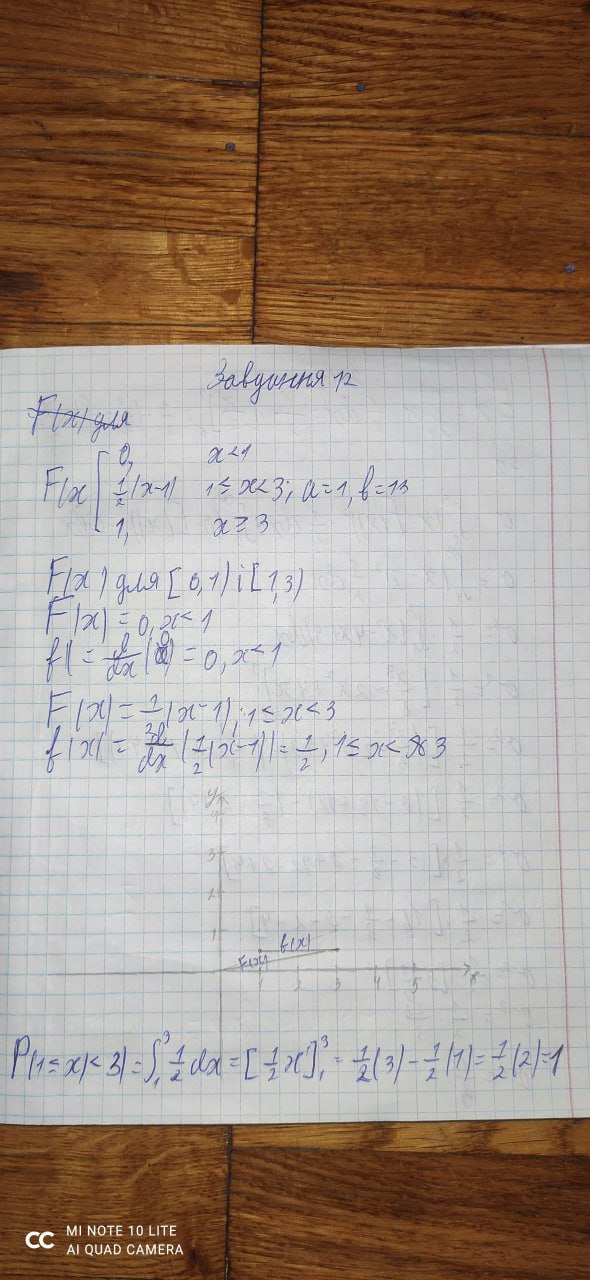 Завдання 12
F(x) для
F(x 0, x<1
1/2(x-1) 1≤x<3; a=1, b=13
1, x≥3
F(x) для [0,1) і [1,3)
F(x) = 0, x<1
f( = d/dx(0) = 0, x<1
F(x) = 1/2(x-1); 1≤x<3
f(x) = d/dx(1/2(x-1)) = 1/2, 1≤x<3
y
4
3
2
1
f(x)
F(x)
1 2 3 4 5 x
P(1≤x)<3)=∫₁³ 1/2 dx=[1/2 x]₁³=1/2(3)-1/2(1)=1/2(2)=1
MI NOTE 10 LITE
AI QUAD CAMERA